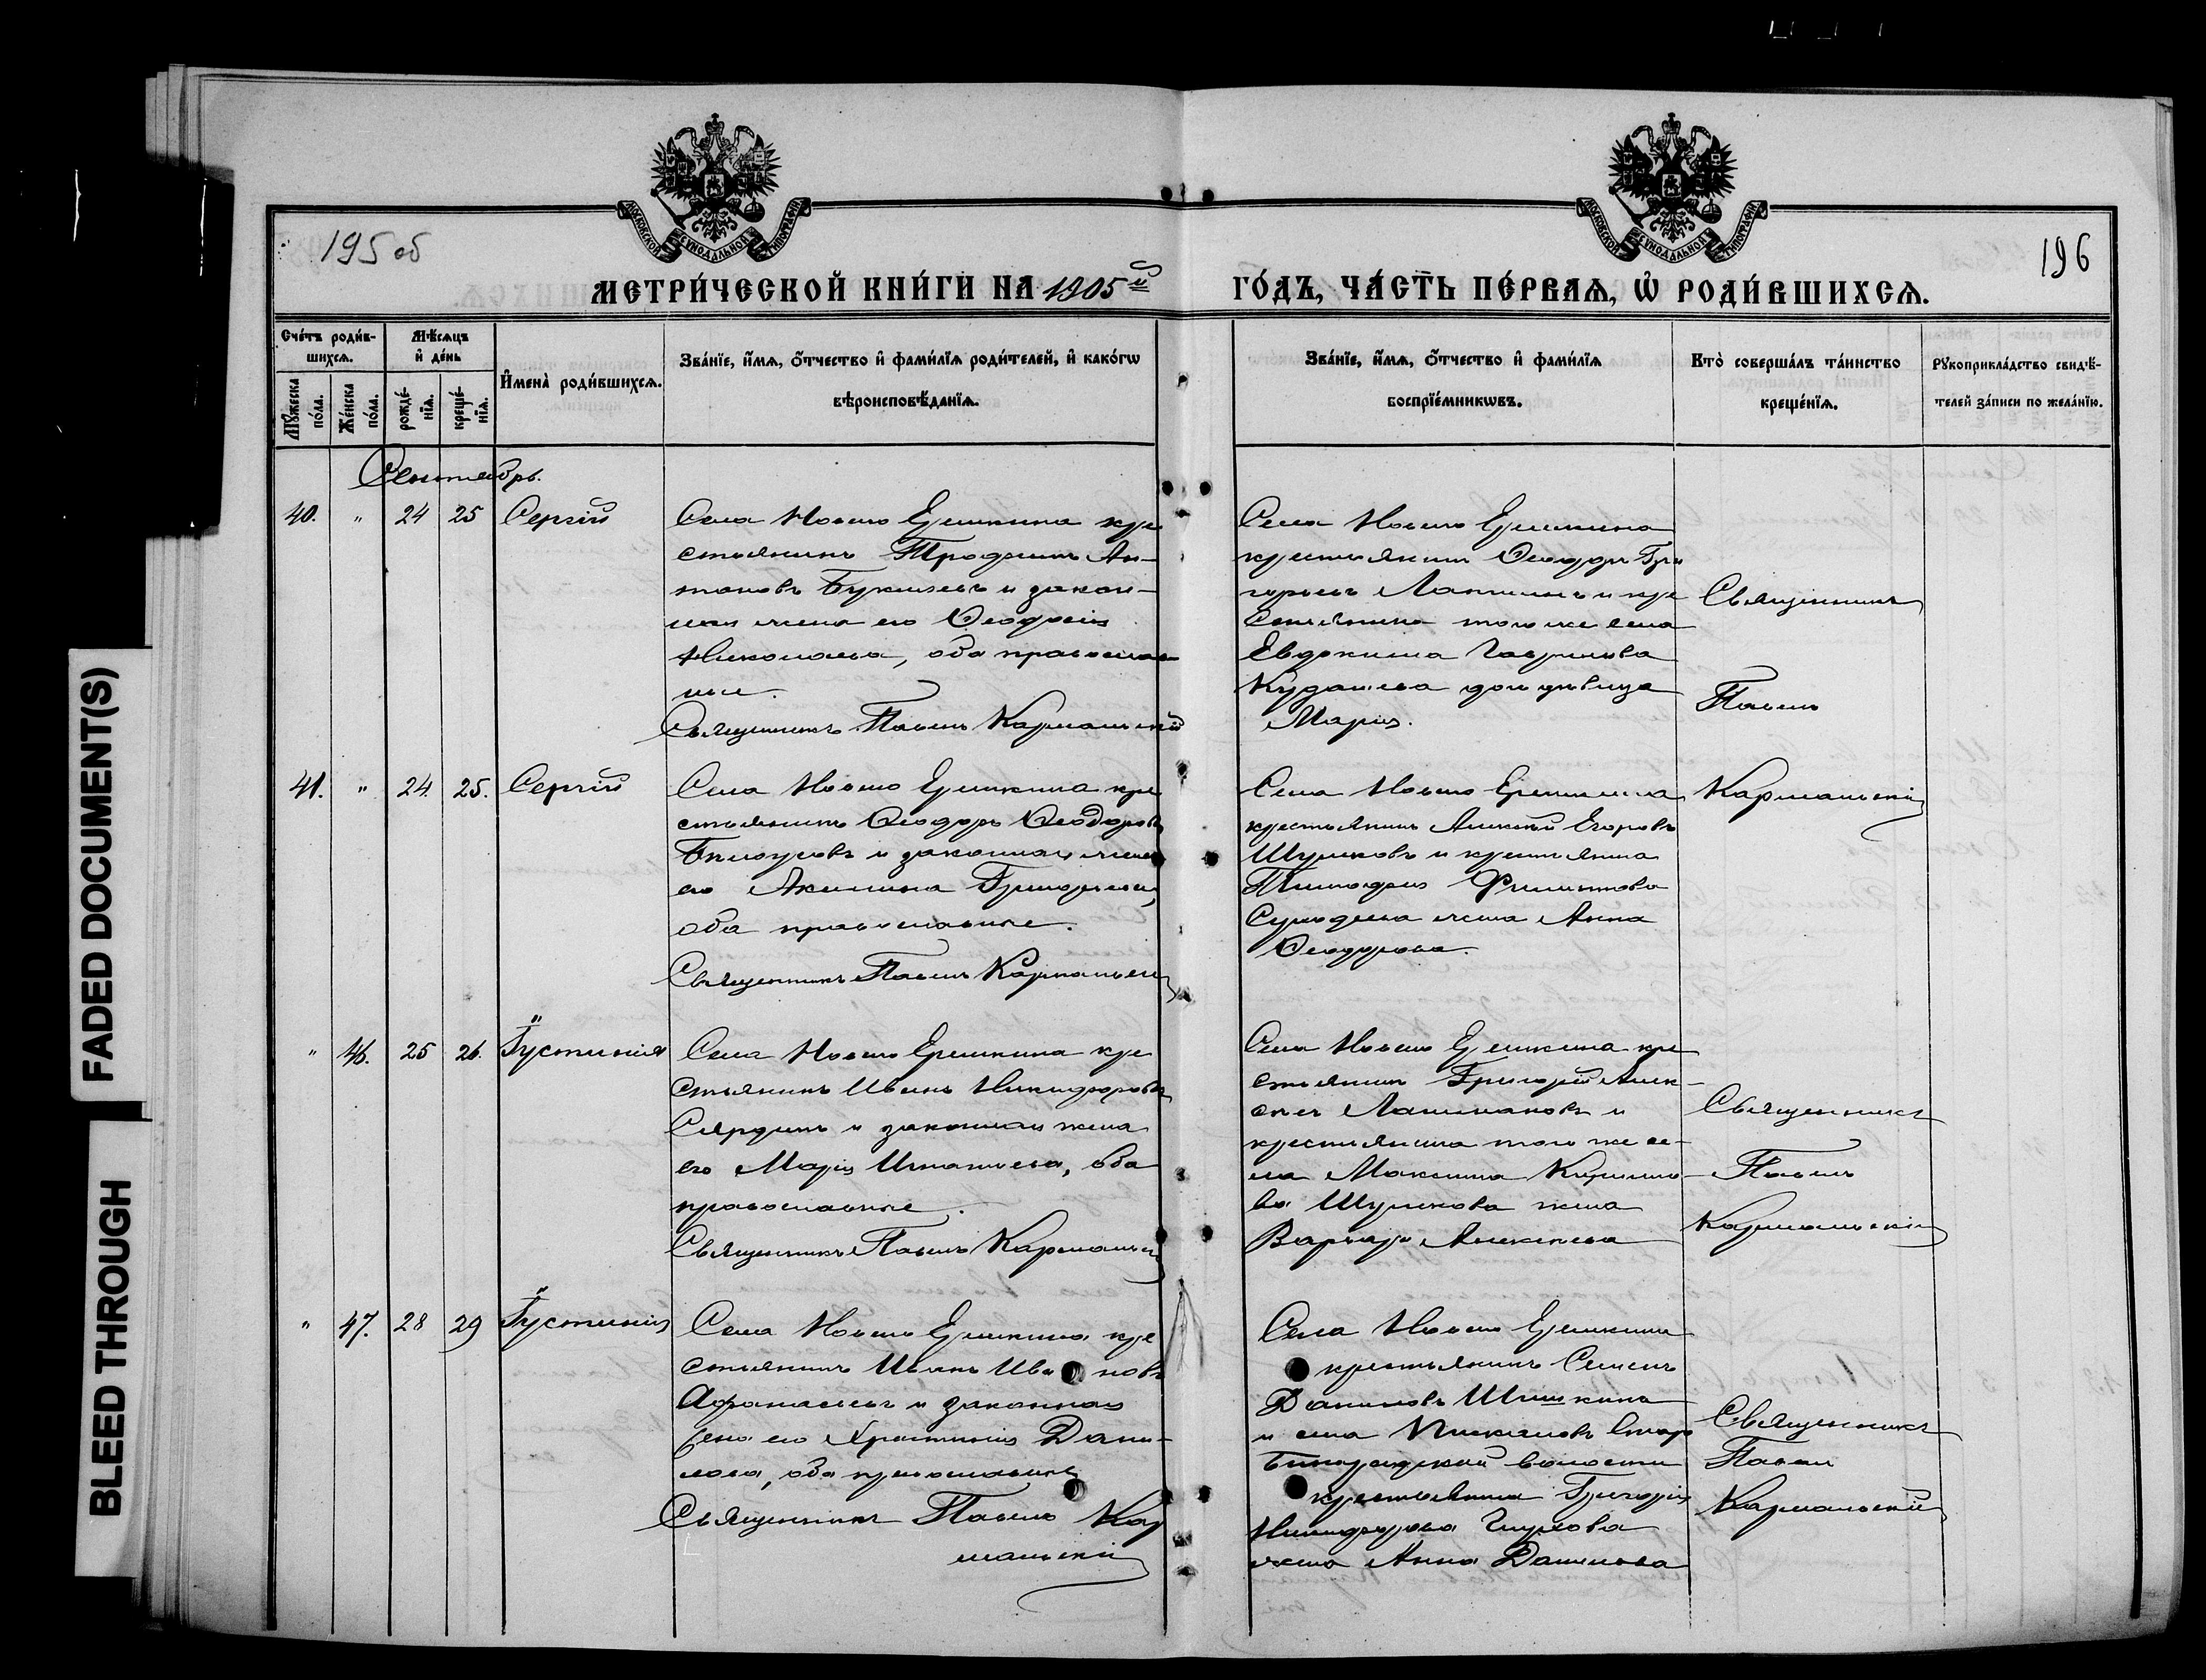 FADED DOCUMENT(S)
BLEED THROUGH
195 об
196
МОСКОВСКОЙ СѴНОДАЛЬНОЙ ТИПОГРАФІИ
МОСКОВСКОЙ СѴНОДАЛЬНОЙ ТИПОГРАФІИ
МЕТРИ́ЧЕСКОЙ КНИ́ГИ НА 1905й
ГО́ДЪ, ЧА́СТЬ ПЕ́РВАѦ, Ѡ҆ РОДИ́ВШИХСѦ.
Сче́тъ роди́в-
шихсѧ.
Мѣ́сѧцъ
и҆ де́нь
Мꙋ́жеска
по́ла.
Же́нска
по́ла.
рожде́-
нїѧ.
креще́-
нїѧ.
И҆мена̀ роди́вшихсѧ.
Зва́нїе, и҆́мѧ, ѻ҆́тчество и҆ фами́лїѧ роди́телей, и҆ како́гѡ
вѣроисповѣ́данїѧ.
Зва́нїе, и҆́мѧ, ѻ҆́тчество и҆ фами́лїѧ
воспрїе́мникѡвъ.
Кто̀ соверша́лъ та́инство
креще́нїѧ.
Рꙋкоприкла́дство свидѣ́-
телей за́писи по жела́нїю.
Сентябрь.
40. " 24 25 Сергій
Села Новаго Ерёмкина кре
стьянинъ Трофимъ Ан-
тоновъ и закон-
ная жена его Ѳеодосія
Николаева, оба православ
ные.
Священникъ Павелъ Кармальскій
Села Новаго Еремкина
крестьянинъ Ѳеодоръ Гри
горьевъ и кре
стьянина того же села
Евдокима Гаврилова
Кудашева дочь дѣвица
Марія.
Священникъ
Павелъ
Кармальскій
41. " 24. 25. Сергій
Села Новаго Еремкина кре
стьянинъ Ѳеодоръ Ѳеодоровъ
Бѣлоусовъ и законная жена
его Акилина Григорьева,
оба православные.
Священникъ Павелъ Кармальскій
Села Новаго Еремкина
крестьянинъ Алексѣй Егоровъ
Шумковъ и крестьянина
Тимофея Филиппова
жена Анна
Ѳеодорова.
" 46. 25 26. Іустинія
Села Новаго Еремкина кре
стьянинъ Иванъ Никифоровъ
и законная жена
его Марія Игнатьева, оба
православные.
Священникъ Павелъ Кармальскій
Села Новаго Еремкина кре
стьянинъ Григорій Алек-
сѣевъ и
крестьянина того же се-
ла Максима Кирилло-
ва Шумкова жена
Варвара Алексѣева
Священникъ
Павелъ
Кармальскій
" 47. 28 29 Іустинія
Села Новаго Еремкина кре
стьянинъ Иванъ Ивановъ
Афанасьевъ и законная
жена его Христинія Дани-
лова, оба православные
Священникъ Павелъ Кар
мальскій
Села Новаго Еремкина
крестьянинъ Семенъ
Даниловъ Шишкинъ
и села
волости
крестьянина Григорія
Никифорова
жена Анна Данилова
Священникъ
Павелъ
Кармальскій